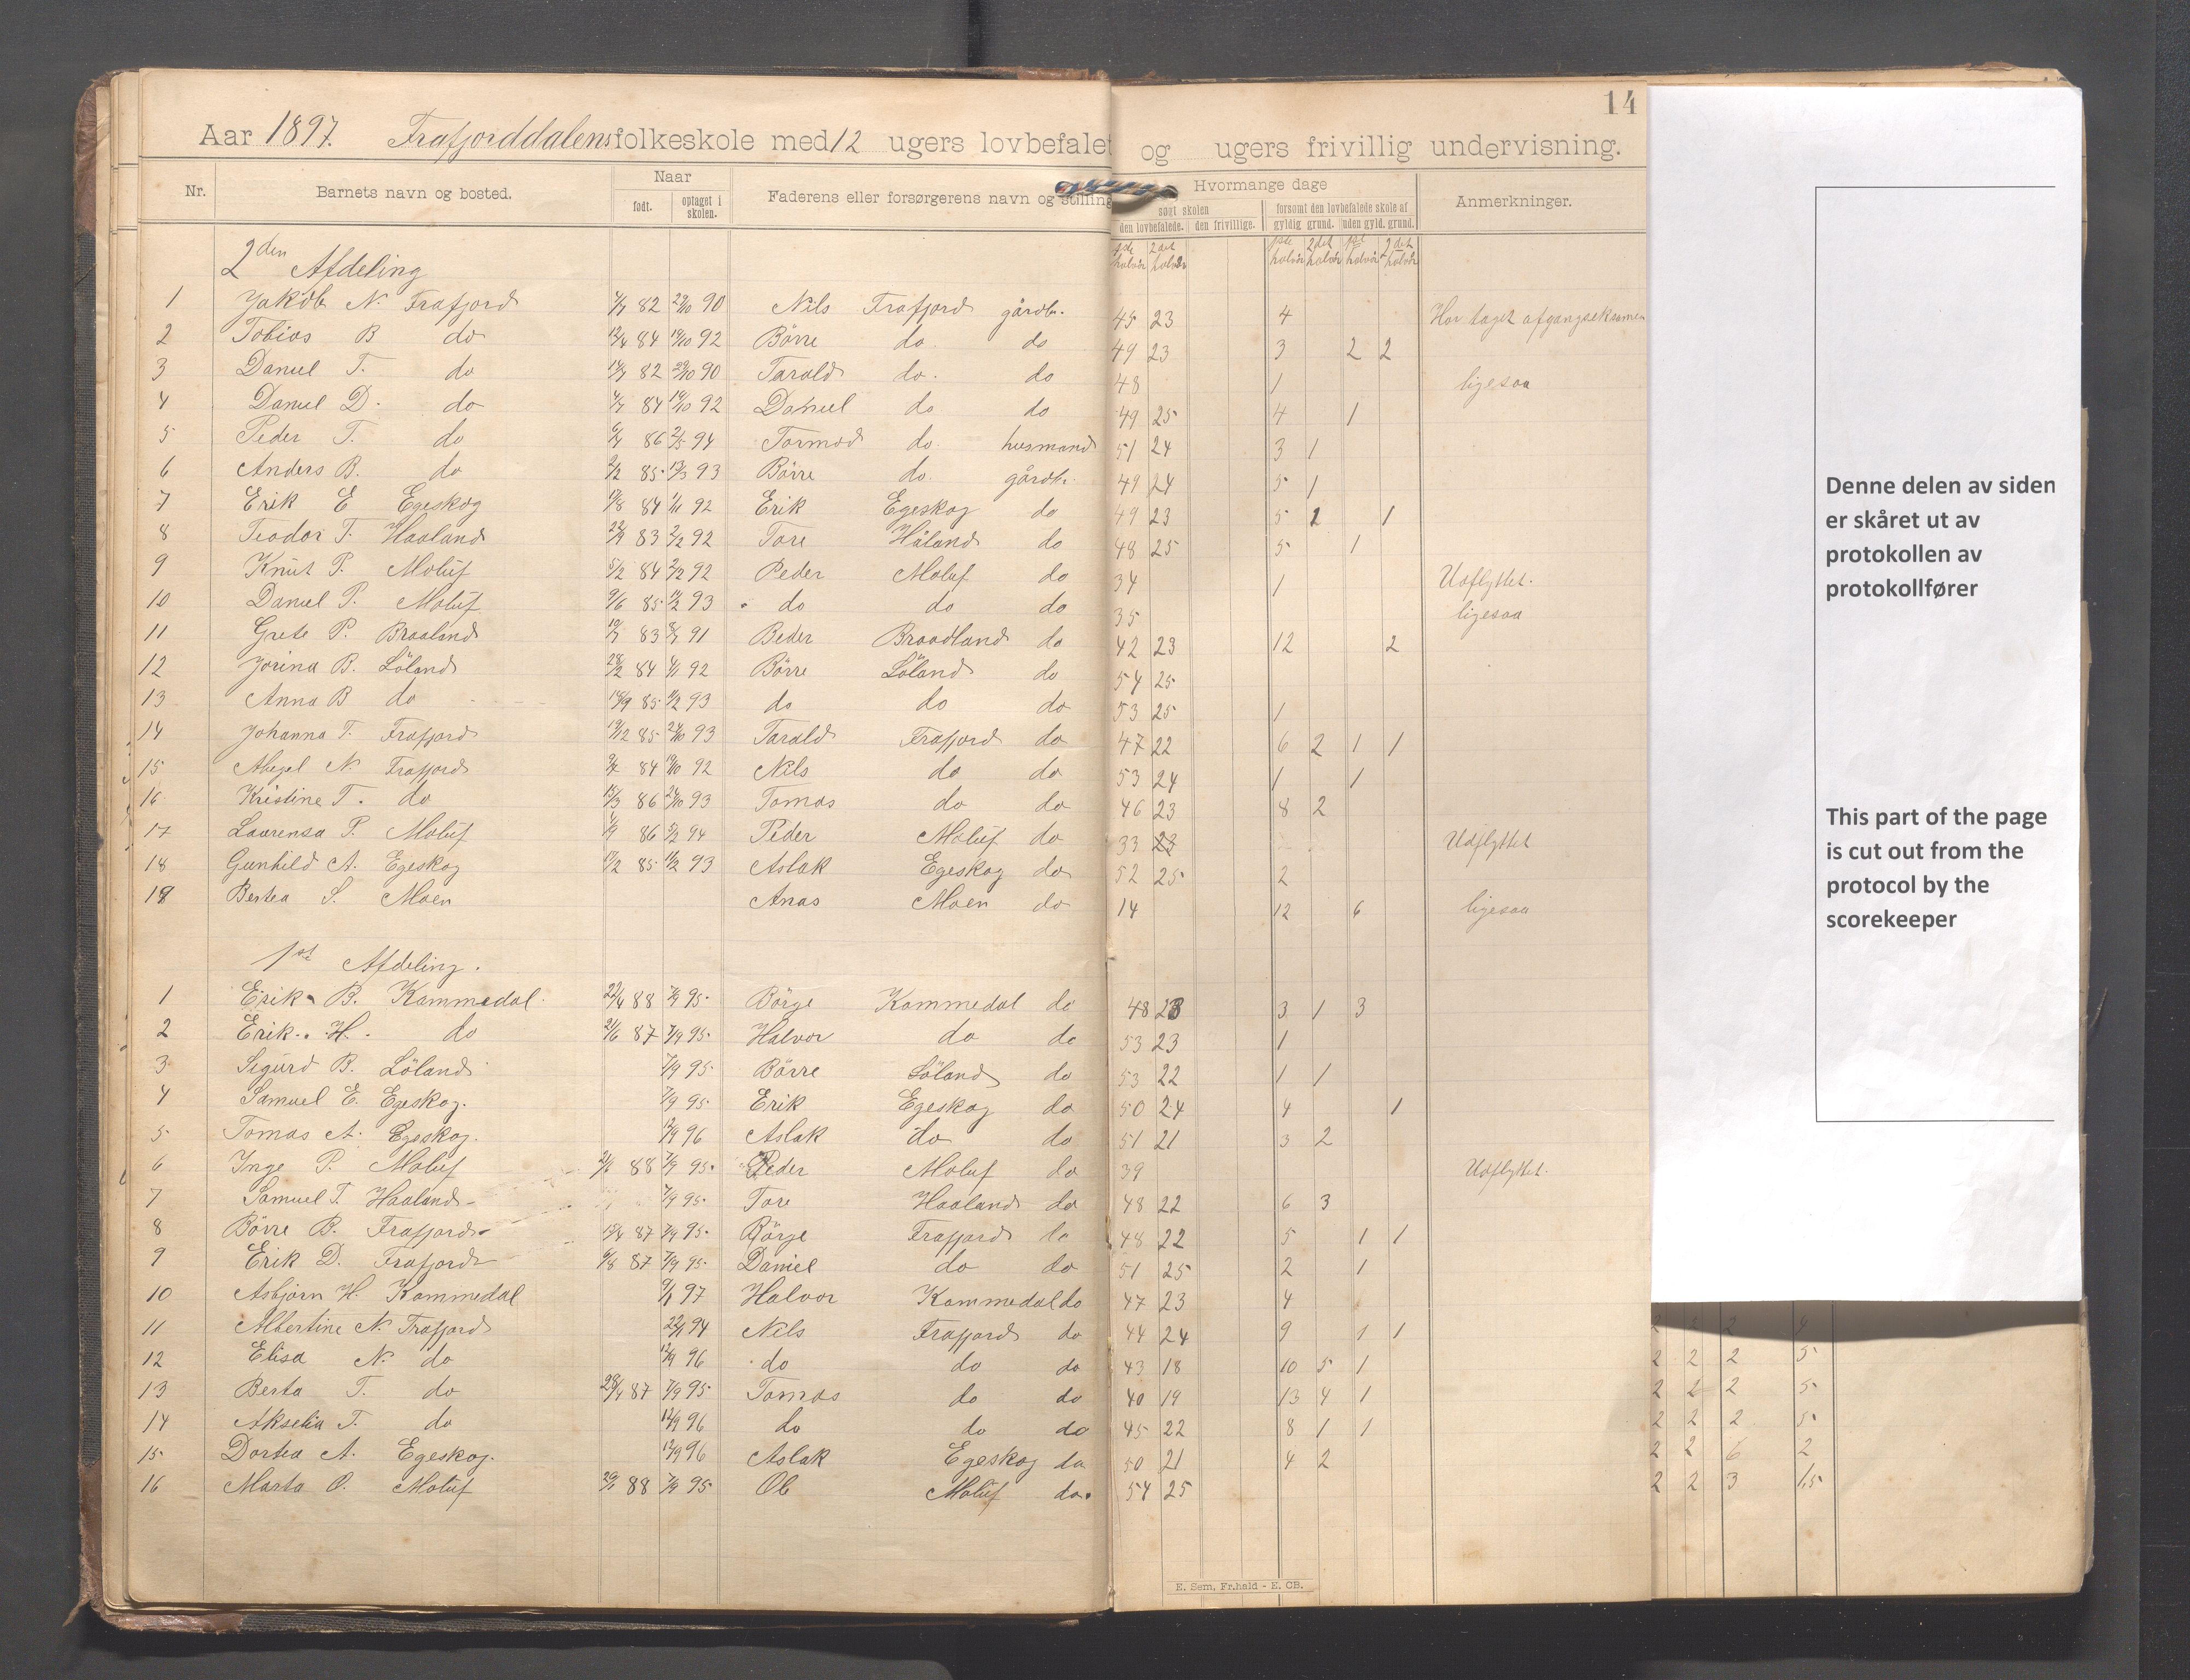 14
Aar 1897. Trafjorddalens folkeskole med 12 ugers lovbefalet og ugers frivillig undervisning.
Nr. Barnets navn og bosted. Naar Faderens eller forsørgerens navn og stilling Hvormange dage Anmerkninger.
født. optaget i skolen. søgt skolen forsømt den lovbefalede skole af
den lovbefalede. den frivillige. gyldig grund. uden gyld. grund.
2den Afdeling
halvår halvår halvår halvår halvår halvår
1 Jakob N. Frafjord 82 29/10 90 Nils Frafjord gårdbr. 45 23 4 Har taget afgangseksamen
2 Tobias B do 12/4 84 19/10 92 Börre do. do 49 23 3 2 2
3 Daniel T. do 82 29/10 90 Tarald do. do 48 1 ligesaa
4 Daniel D. do 84 19/10 92 Daniel do do 49 25 4 1
5 Peder T. do 86 2/5 94 Tormod do. husmand 51 24 3 1
6 Anders B. do 85 13/3 93 Börre do. gårdbr. 49 24 5 1
7 Erik E Egeskog 84 1/11 92 Erik Egeskog do 49 23 5 2 1
8 Teodor T. Haaland 83 2/2 92 Tore Håland do 48 25 5 1
9 Knut P. Moluf 5/2 84 2/2 92 Peder Moluf do 34 1 Udflyttet.
10 Daniel P. Moluf 9/6 85 93 do do do 35 ligesaa
11 Grete P. Braaland 83 91 Peder Braadland do 42 23 12 2
12 Jorina B. Löland 28/2 84 92 Börre Löland do 54 25
13 Anna B do 85 93 do do do 53 25 1
14 Johanna T. Frafjord 19/12 85 24/10 93 Tarald Frafjord do 47 22 6 2 1 1
15 Abigel N. Frafjord 84 19/10 92 Nils do do 53 24 1 1
16 Kristine T. do 15/3 86 24/10 93 Tomas do do 46 23 8 2
17 Laurensa P. Moluf 86 5/2 94 Peder Moluf do 33 23 Udflyttet
18 Gunhild A. Egeskog 85 93 Aslak Egeskog do 52 25 2
19 Bertea S. Moen Anas Moen do 14 12 6 ligesaa
1st Afdeling.
1 Erik B. Kommedal 22/4 88 7/9 95 Börge Kommedal do 48 23 3 1 3
2 Erik H. do 21/6 87 7/9 95 Halvor do do 53 23 1
3 Sigurd B. Löland 7/9 95 Börre Löland do 53 22 1 1
4 Samuel E. Egeskog. 7/9 95 Erik Egeskog do 50 24 4 1
5 Tomas A. Egeskog. 12/9 96 Aslak do do 51 21 3 2
6 Inge P. Moluf 88 7/9 95 Peder Moluf do 39 Udflyttet.
7 Samuel T. Haaland 7/9 95 Tore Haaland do 48 22 6 3
8 Börre B. Frafjord 15/4 87 7/9 95 Börge Frafjord do 48 22 5 1 1
9 Erik D. Frafjord 6/8 87 7/9 95 Daniel do do 51 25 2 1
10 Asbjørn H. Kommedal 97 Halvor Kommedal do 47 23 4
11 Albertine N. Frafjord 22/1 94 Nils Frafjord do 44 24 9 1 1
12 Elisa N. do 12/9 96 do do do 43 18 10 5 1
13 Berta T. do 28/4 87 7/9 95 Tomas do do 40 19 13 4 1
14 Akselia T. do 12/9 96 do do do 45 22 8 1 1
15 Dortea A. Egeskog. 12/9 96 Aslak Egeskog do 50 21 4 2
16 Marta O. Moluf 88 7/9 95 Ole Moluf do. 54 25
E. Sem, Fr.hald - E. CB.
Denne delen av siden
er skåret ut av
protokollen av
protokollfører
This part of the page
is cut out from the
protocol by the
scorekeeper
2 2 2 5
2 2 2 5
2 2 2 5
2 2 6 2
2 2 3 1,5